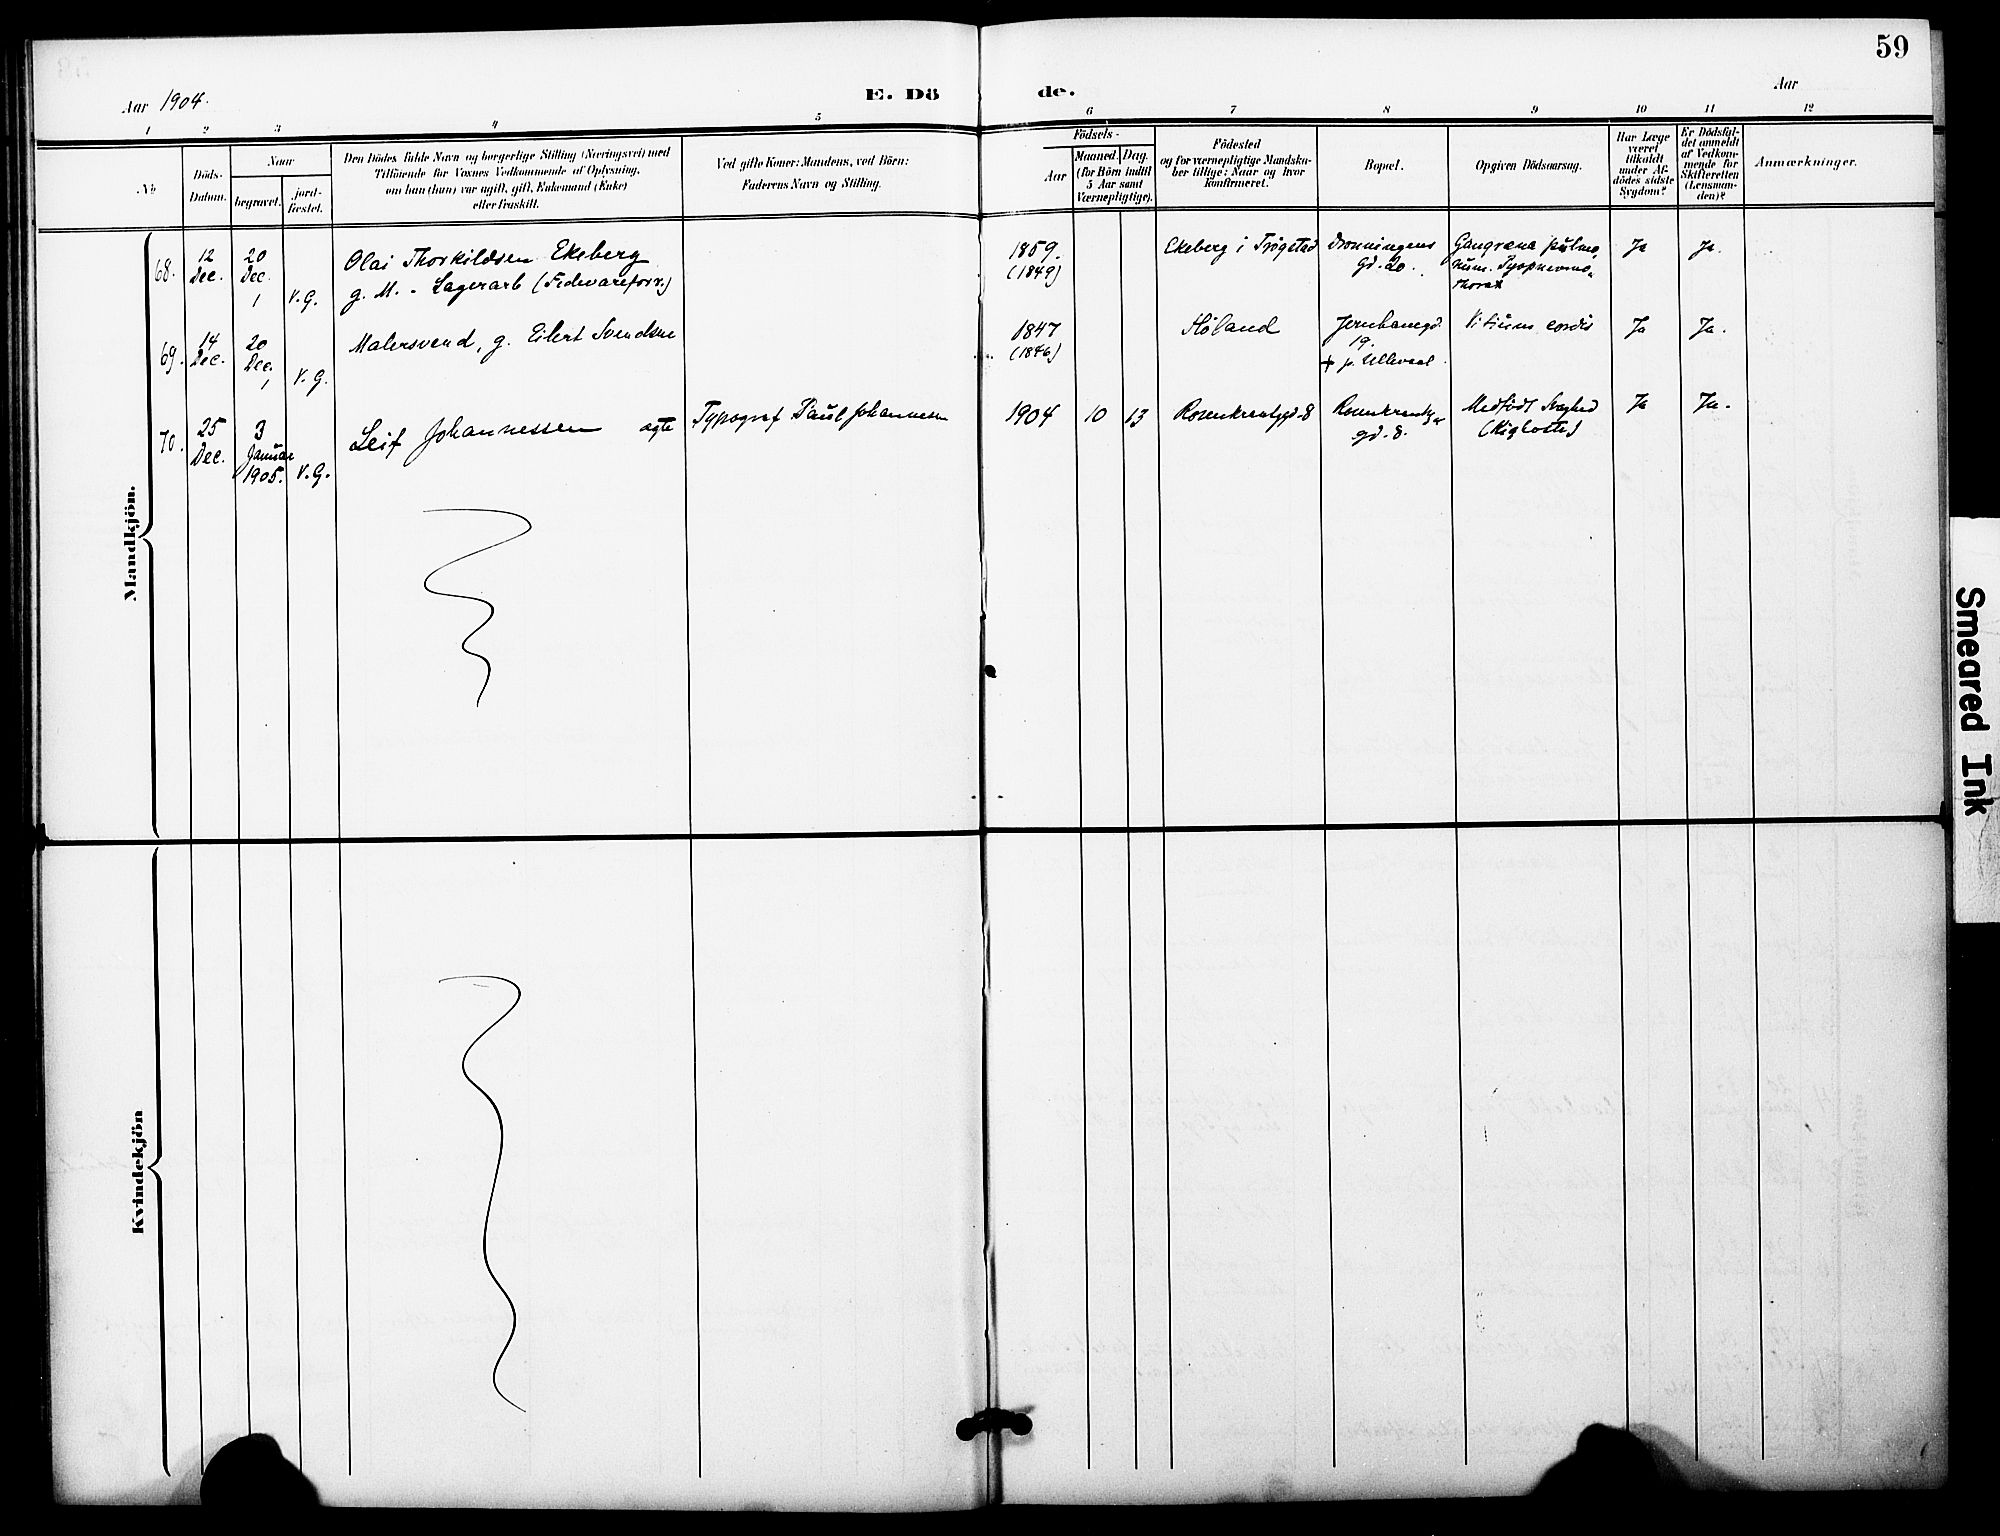 59
Aar 1904.
E. Dö de.
Aar
1 2 3 4 5 6 7 8 9 10 11 12
No
Döds-
Datum.
Naar
begravet.
jord-
fæstet.
Den Dödes fulde Navn og borgerlige Stilling (Næringsvei) med
Tilföiende for Voxnes Vedkommende af Oplysning,
om han (hun) var ugift, gift, Enkemand (Enke)
eller fraskilt.
Ved gifte Koner: Mandens, ved Börn:
Faderens Navn og Stilling.
Födsels-
Aar
Maaned. Dag.
(for Börn indtil
5 Aar samt
Værnepligtige).
Födested
og for værnepligtige Mandska-
ber tillige: Naar og hvor
konfirmeret.
Bopæl.
Opgiven Dödsaarsag.
Har Læge
været
tilkaldt
under Af-
dödes sidste
Sygdom?
Er Dödsfal-
det anmeldt
af Vedkom-
mende for
Skifteretten
(Lensman-
den)?
Anmærkninger.
Mandkjön.
68.
12
Dec.
20
Dec.
1
V.G.
Olai Thorkildsen Ekeberg
g. M. - Lagerarb (Fedevareforr.)
1859.
(1849)
Ekeberg i Trögstad
Dronningens
gd. 20.
Gangræna pulmo-
num. Pyopneumo-
thorax
Ja
Ja.
69.
14
Dec.
20
Dec.
1
V.G.
Malersvend, g. Eilert Svendsen
1847
(1846)
Höland
Jernbanegd.
19.
+ p. Ullevaal.
Vitium cordis
Ja
Ja.
70.
25
Dec.
3
Januar
1905.
V.G.
Leif Johannessen ægte
Typograf Paul Johannesen
1904 10 13
Rosenkrantzgd. 8
Rosenkrantz-
gd. 8.
Medfödt Svaghed
(Kighoste)
Ja
Ja.
Kvindekjön
Smeared Ink